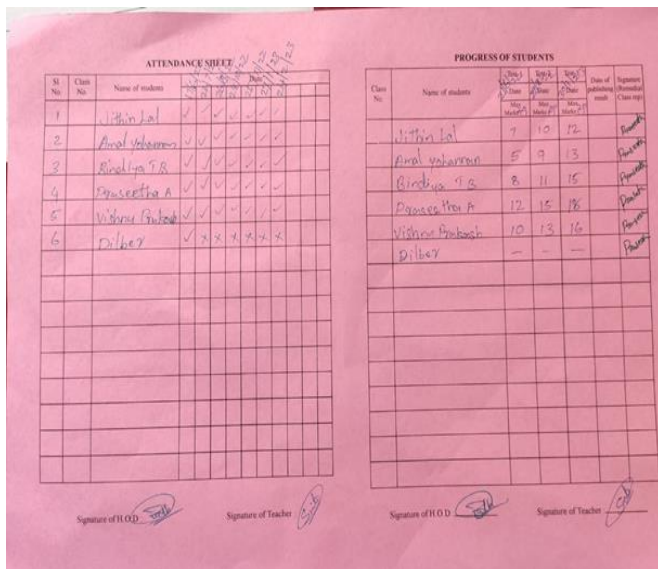 ATTENDANCE SHEET
Sl No Class No Name of students Date
1 Jithin Lal ✓ ✓ ✓ ✓ ✓ ✓ ✓
2 Amal yohannan ✓ ✓ ✓ ✓ ✓ ✓ ✓
3 Bindiya T S ✓ ✓ ✓ ✓ ✓ ✓ ✓
4 Praseetha A ✓ ✓ ✓ ✓ ✓ ✓ ✓
5 Vishnu Prakash ✓ ✓ ✓ ✓ ✓ ✓ ✓
6 Dilber ✓ x x x x x x
Signature of H.O.D Signature of Teacher
PROGRESS OF STUDENTS
Class No Name of students Test 1 Test 2 Test 3 Date of publishing result Signature (Remedial Class rep)
Date Date Date
Max. Marks Max. Marks Max. Marks
Jithin Lal 7 10 12
Amal yohannan 5 9 13
Bindiya T S 8 11 15
Praseetha A 12 15 18
Vishnu Prakash 10 13 16
Dilber — — —
Signature of H.O.D Signature of Teacher